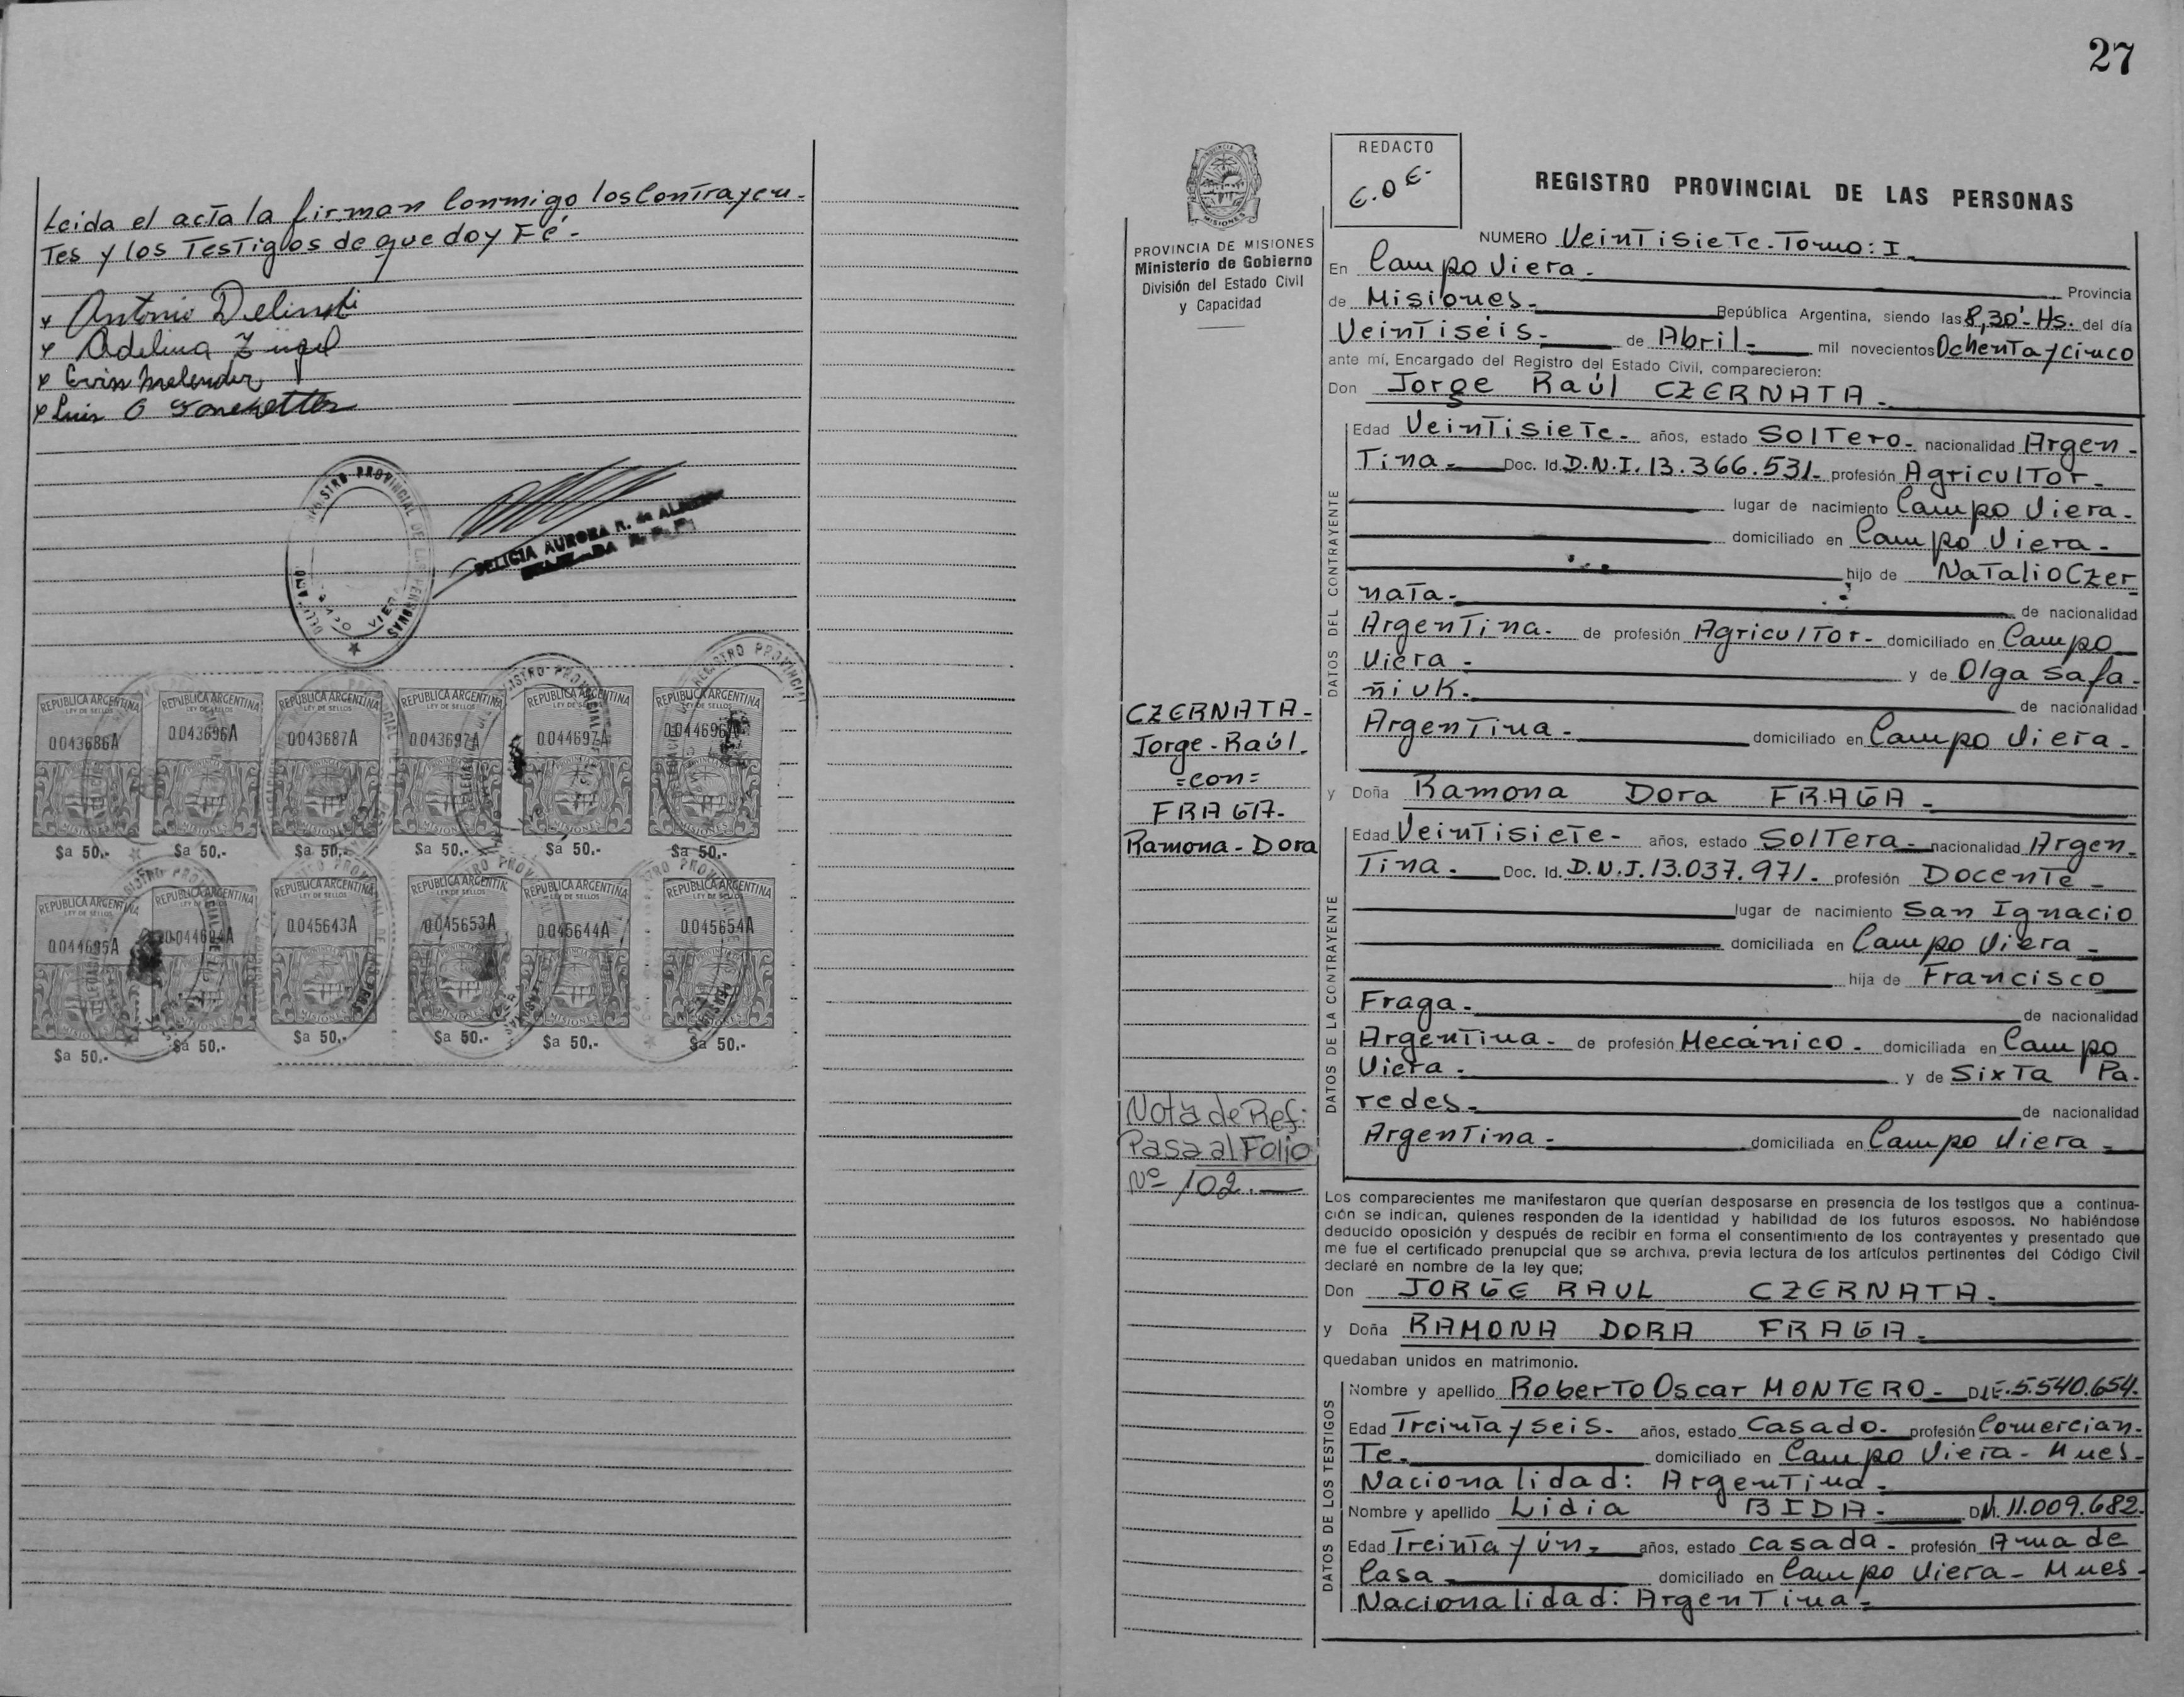 Leida el acta la firman Conmigo los Contrayen-
Tes y los Testigos de que doy Fé.-
x Antonio Delinski
x Adelina
x
x Luis O
REGISTRO PROVINCIAL DE LAS PERSONAS
VIERA
DELICIA AURORA R. de
REPUBLICA ARGENTINA
LEY DE SELLOS
0043686A
MISIONES
$a 50.-
REPUBLICA ARGENTINA
LEY DE SELLOS
0043696A
MISIONES
$a 50.-
REPUBLICA ARGENTINA
LEY DE SELLOS
0043687A
MISIONES
$a 50.-
REPUBLICA ARGENTINA
LEY DE SELLOS
0043697A
MISIONES
$a 50.-
REPUBLICA ARGENTINA
LEY DE SELLOS
0044697A
MISIONES
$a 50.-
REPUBLICA ARGENTINA
LEY DE SELLOS
0044696A
MISIONES
$a 50.-
REPUBLICA ARGENTINA
LEY DE SELLOS
0044695A
MISIONES
$a 50.-
REPUBLICA ARGENTINA
LEY DE SELLOS
MISIONES
$a 50.-
REPUBLICA ARGENTINA
LEY DE SELLOS
0045643A
MISIONES
$a 50.-
REPUBLICA ARGENTINA
LEY DE SELLOS
0045653A
MISIONES
$a 50.-
REPUBLICA ARGENTINA
LEY DE SELLOS
0045644A
MISIONES
$a 50.-
REPUBLICA ARGENTINA
LEY DE SELLOS
0045654A
MISIONES
$a 50.-
27
PROVINCIA DE MISIONES
Ministerio de Gobierno
División del Estado Civil
y Capacidad
REDACTO
E.O.E.
REGISTRO PROVINCIAL DE LAS PERSONAS
NUMERO VeinTisieTe-Tomo: I
En Campo Viera.- Provincia
de Misiones.- República Argentina, siendo las 8,30'-Hs. del día
VeinTiséis.- de Abril.- mil novecientos Ochenta y cinco
ante mí, Encargado del Registro del Estado Civil, comparecieron:
Don Jorge Raúl CZERNATA.-
DATOS DEL CONTRAYENTE
Edad VeinTisieTe.- años, estado SolTero.- nacionalidad Argen-
Tina.- Doc. Id. D.N.I. 13.366.531.- profesión AgriculTor.-
lugar de nacimiento Campo Viera.-
domiciliado en Campo Viera.-
hijo de NaTalio Czer
naTa.- de nacionalidad
ArgenTina.- de profesión AgriculTor.- domiciliado en Campo
Viera.- y de Olga Safa-
ñiuk.- de nacionalidad
ArgenTina.- domiciliado en Campo Viera.-
y Doña Ramona Dora FRAGA.-
CZERNATA-
Jorge-Raúl.
=con=
FRAGA-
Ramona-Dora
DATOS DE LA CONTRAYENTE
Edad VeinTisieTe- años, estado SolTera.- nacionalidad Argen-
Tina.- Doc. Id. D.N.I. 13.037.971.- profesión DocenTe.-
lugar de nacimiento San Ignacio
domiciliada en Campo Viera.-
hija de Francisco
Fraga.- de nacionalidad
ArgenTina.- de profesión Mecánico.- domiciliada en Campo
Viera.- y de SixTa Pa-
redes.- de nacionalidad
ArgenTina.- domiciliada en Campo Viera.-
Nota de Ref:
Pasa al Folio
Nº 102.-
Los comparecientes me manifestaron que querían desposarse en presencia de los testigos que a continua-
ción se indican, quienes responden de la identidad y habilidad de los futuros esposos. No habiéndose
deducido oposición y después de recibir en forma el consentimiento de los contrayentes y presentado que
me fue el certificado prenupcial que se archiva, previa lectura de los artículos pertinentes del Código Civil
declaré en nombre de la ley que;
Don JORGE RAUL CZERNATA.-
y Doña RAMONA DORA FRAGA.-
quedaban unidos en matrimonio.
DATOS DE LOS TESTIGOS
Nombre y apellido RoberTo Oscar MONTERO- DLE. 5.540.654.
Edad TreinTa y seis.- años, estado Casado.- profesión Comercian-
Te.- domiciliado en Campo Viera- Mnes-
Nacionalidad: ArgenTina.-
Nombre y apellido Lidia BIDA.- DNI. 11.009.682.
Edad TreinTa y ún.- años, estado casada.- profesión Ama de
Casa.- domiciliado en Campo Viera- Mnes-
Nacionalidad: ArgenTina.-